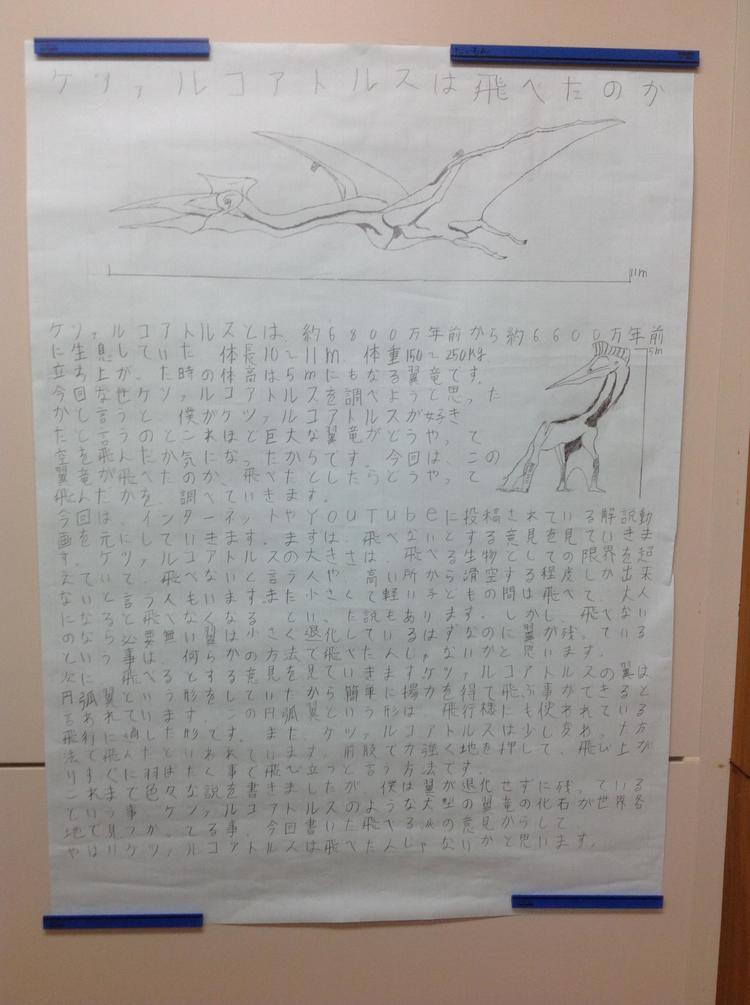 ケツァルコアトルスは飛べたのか
11m
ケツァルコアトルスとは、約6800万年前から約6600万年前
に生息していた 体長10~11m、体重150~250Kg
立ち上がった時の体高は5mにもなる翼竜です。
5m
今回なぜケツァルコアトルスを調べようと思った
かと言うと、僕がケツァルコアトルスが好き
だと言うのとこれほど巨大な翼竜がどうやって
空を飛んだか気になったからです。今回は、この
翼竜が飛べたのか、飛べたとしたらどうやって
飛んだかを、調べていきます。
今回は、インターネットやYouTubeに投稿されている解説動
画を元にしていきます。まずは、飛べないとする意見を見ていきま
す。ケツァルコアトルスの大きさは、飛べる生物としての限界を超
えていて、飛べないと言う人や、高い所から滑空する程度しか出来
ないと言う人もいます。また小さくて軽い子どもの間は飛べて、大人
になると飛べなくなる といった説もあります。しかし、飛べない
のなら必要無い翼は小さく退化しているはずなのに翼が残っている
という事は、何らかの方法で飛べたんじゃないかと思います。
次に、飛べるとする意見を見ていきますケツァルコアトルスの翼は
円弧翼という形をしていたから簡単に揚力を得て飛ぶ事ができると
言われています。この円弧翼という形は 飛行機にも使われている
飛行に適した形です。また、ケツァルコアトルスは少し変わった方
法で飛んだといわれています。前肢で力強く地を押して、飛び上が
りすぐに羽ばたく事で飛び立つと言う方法です。
これまで色々な説を書きましたが、僕は翼が退化せずに残っている
という事、ケツァルコアトルスのような大型の翼竜の化石が世界各
地で見つかってる事、今回書いた飛べる の意見からして
やはりケツァルコアトルスは飛べたんじゃないかと思います。